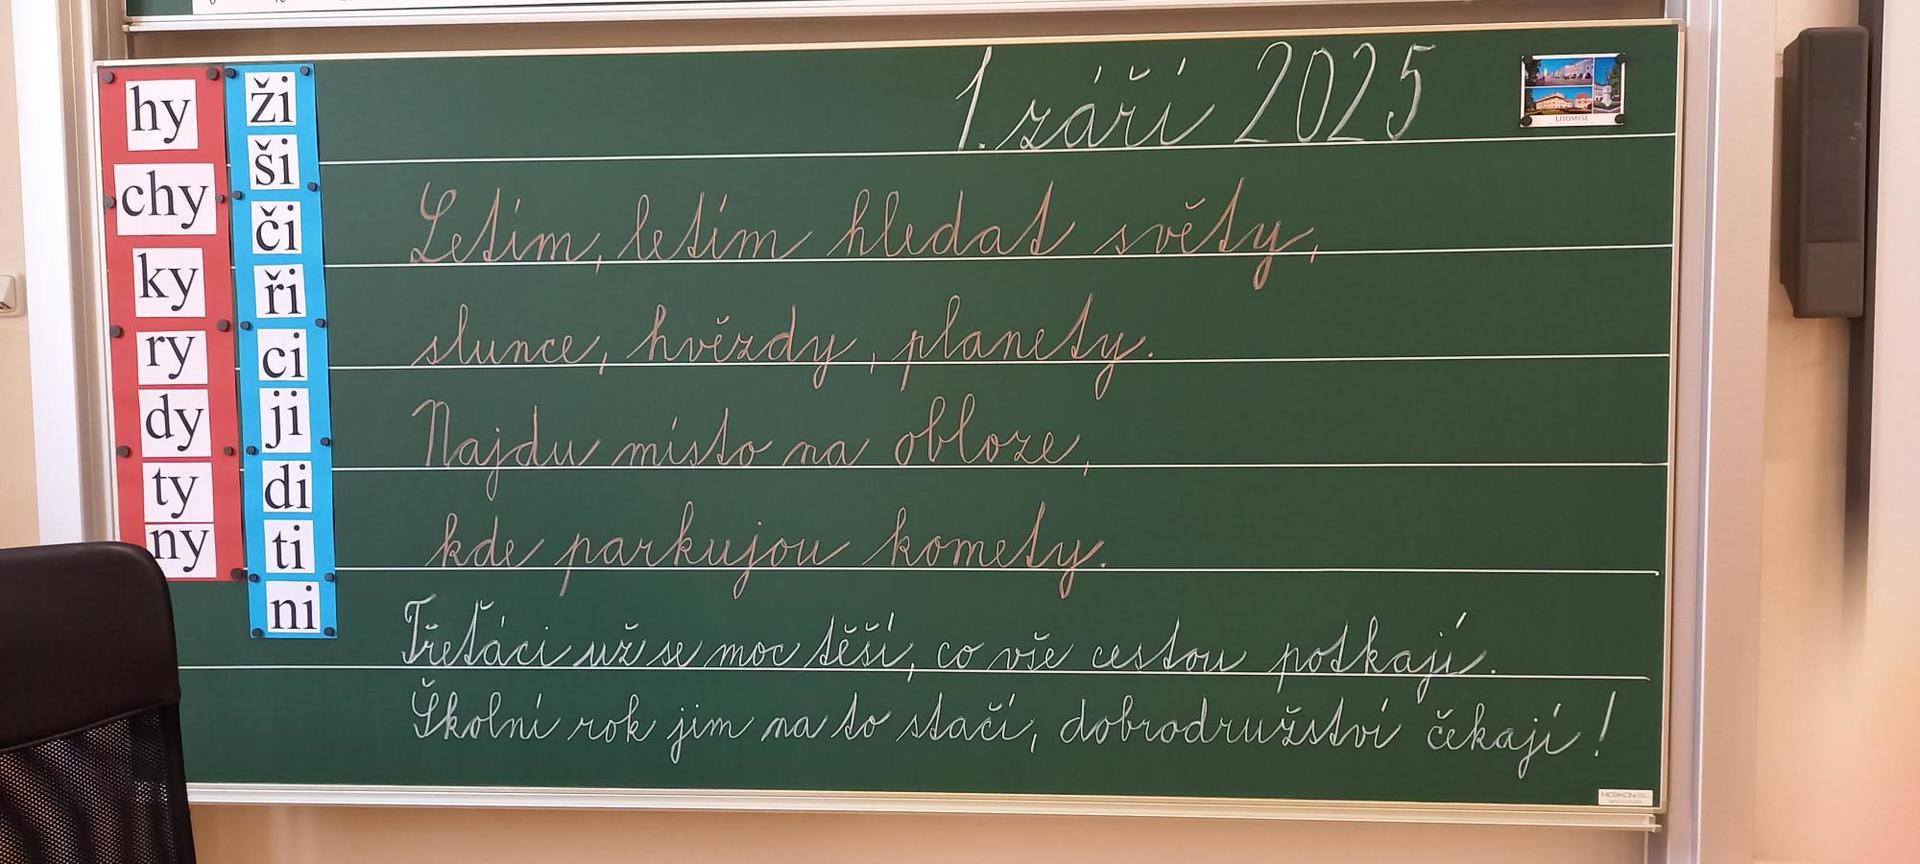 hy
chy
ky
ry
dy
ty
ny
ži
ši
či
ři
ci
ji
di
ti
ni
1. září 2025
LITOMYŠL
Letím, letím hledat světy,
slunce, hvězdy, planety.
Najdu místo na obloze,
kde parkujou komety.
Třeťáci už se moc těší, co vše cestou potkají.
Školní rok jim na to stačí, dobrodružství čekají!